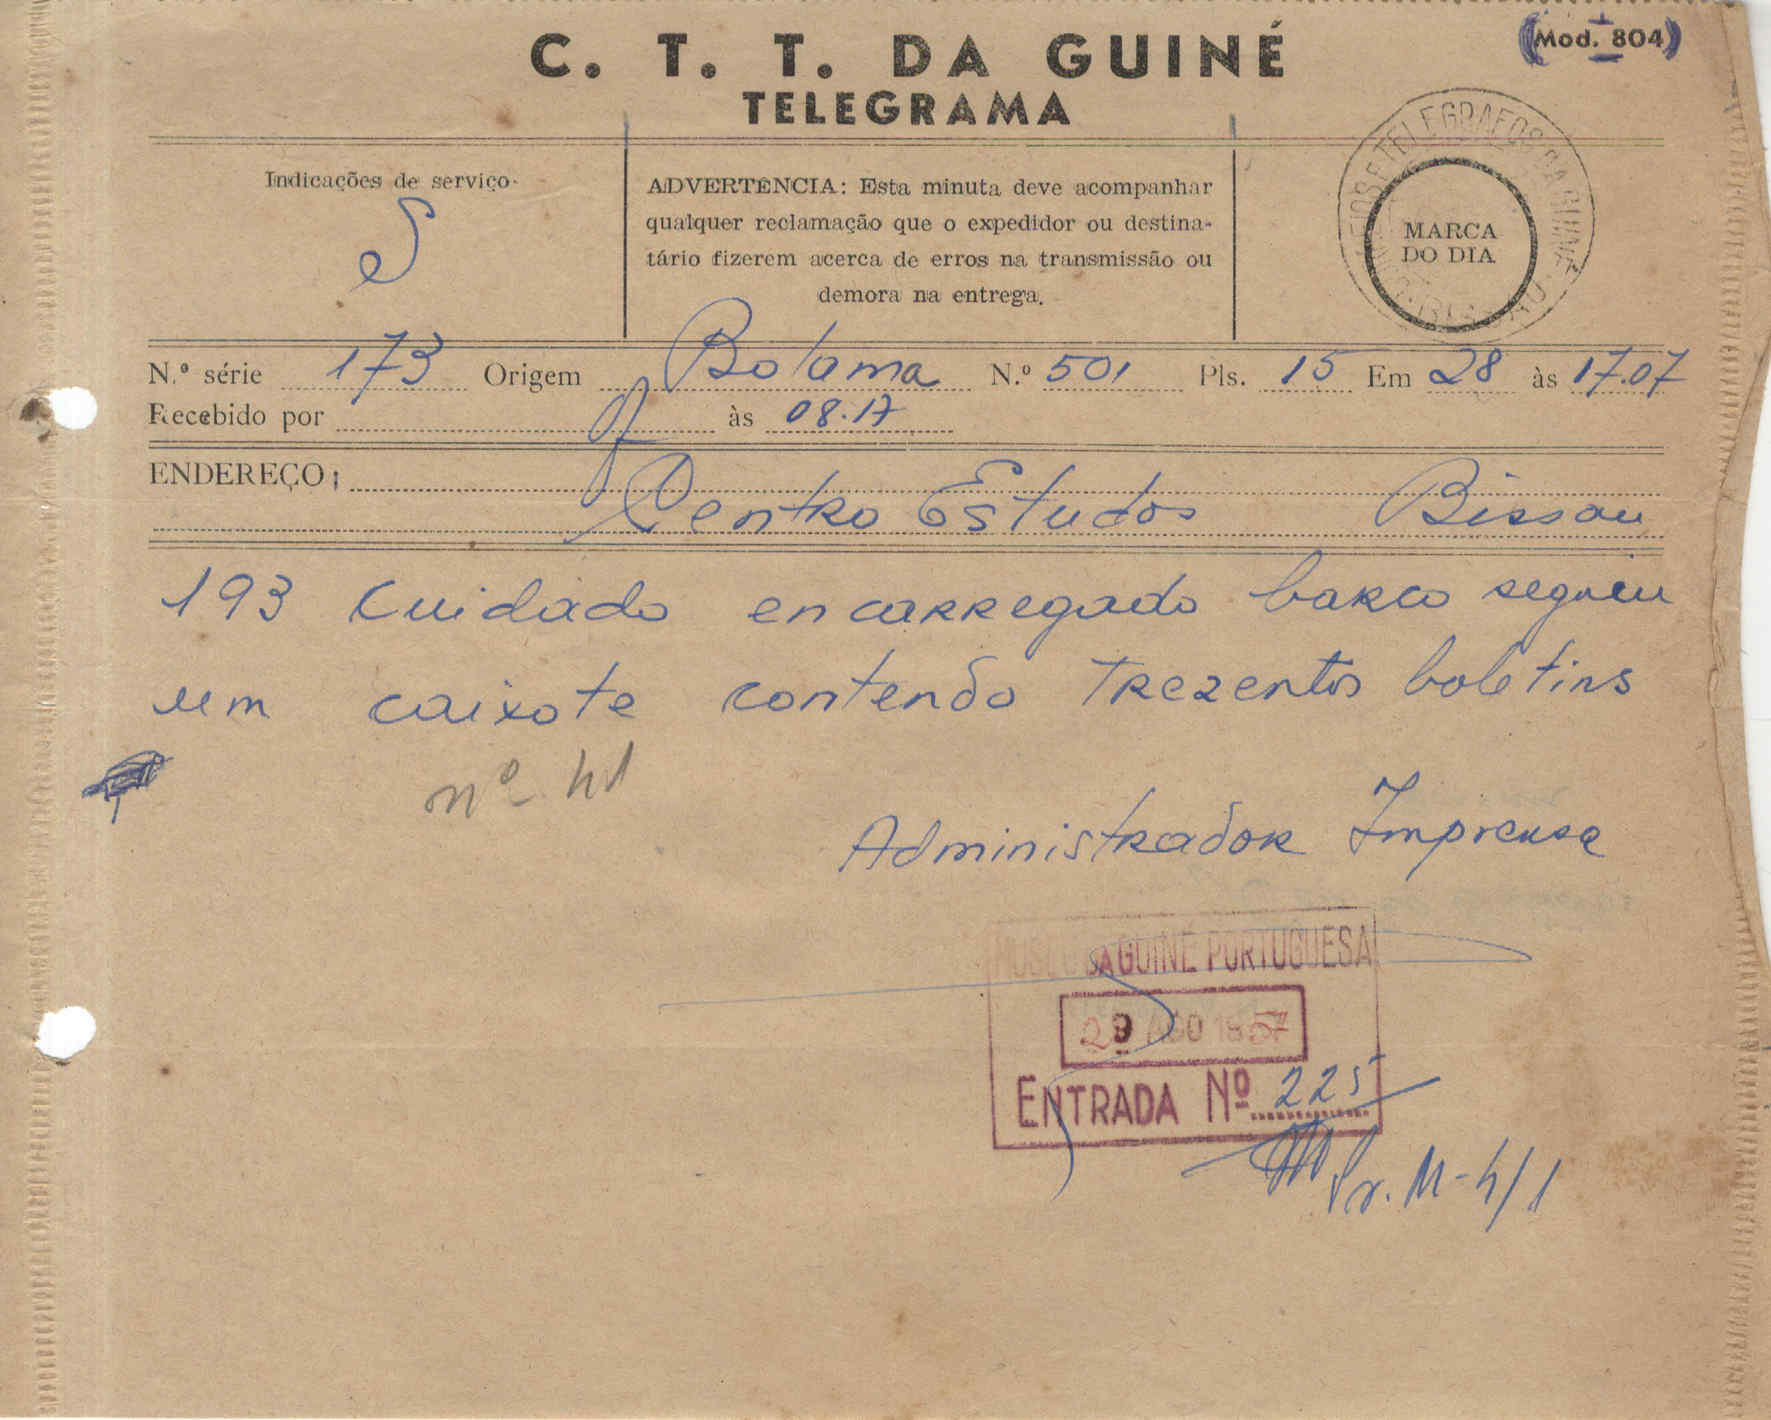 C. T. T. DA GUINÉ
(Mod. 804)
TELEGRAMA
Indicações de serviço
S
ADVERTÊNCIA: Esta minuta deve acompanhar
qualquer reclamação que o expedidor ou destina-
tário fizerem acerca de erros na transmissão ou
demora na entrega.
TELEGRAFOS DA GUINÉ
MARCA
DO DIA
N.º série 173 Origem Bolama N.º 501 Pls. 15 Em 28 às 17.07
Recebido por às 08.17
ENDEREÇO:
Centro Estudos Bissau
193 Cuidado encarregado barco seguiu
um caixote contendo trezentos boletins
nº 41
Administrador Imprensa
MUSEU DA GUINÉ PORTUGUESA
29 AGO 1957
ENTRADA Nº 225
Pr. M-4/1